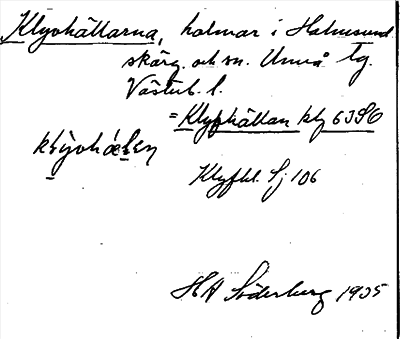 Klyvhällarna, holmar i Holmsund
skärg. och sn. Umeå tg.
Västerb. l.
= Klyfhällan kbl 63 SO
Klyfhl. Sj 106
H A Söderburg 1935